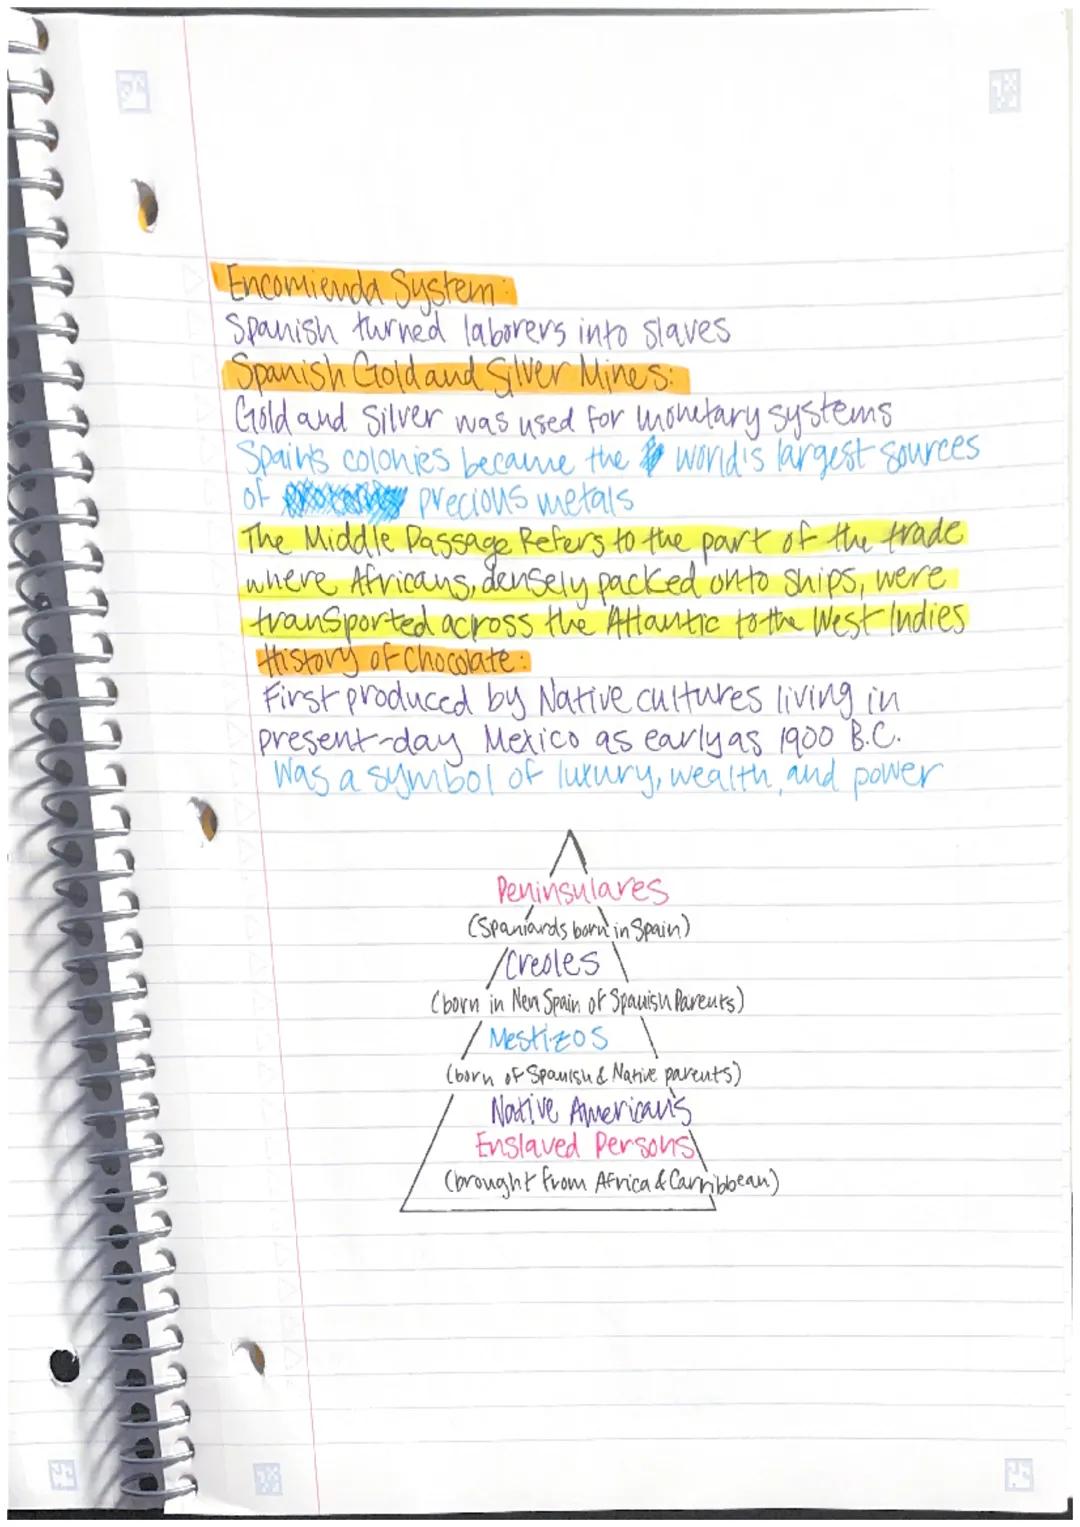 Encomienda System:
Spanish turned laborers into slaves
Spanish Gold and Silver Mines:
Gold and Silver was used for monetary systems
Spain's colonies became the world's largest sources
of precious metals
The Middle Passage Refers to the part of the trade
where Africans, densely packed onto ships, were
transported across the Atlantic to the West Indies
History of Chocolate:
First produced by Native cultures living in
present-day Mexico as early as 1900 B.C.
Was a symbol of luxury, wealth, and power
Peninsulares
(Spaniards born in Spain)
Creoles
(born in New Spain of Spanish Parents)
Mestizos
(born of Spanish & Native parents)
Native Americans
Enslaved Persons
(brought from Africa & Carribbean)